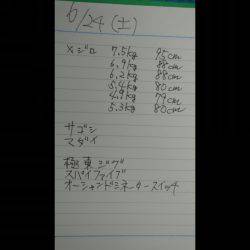 6/24(土)
メジロ 7.5kg 95cm
6.9kg 88cm
6.2kg 88cm
5.4kg 80cm
4.9kg 79cm
5.3kg 80cm
サゴシ
マダイ
極東ジグ
スパイファイブ
オーシャンドミネータースイッチ